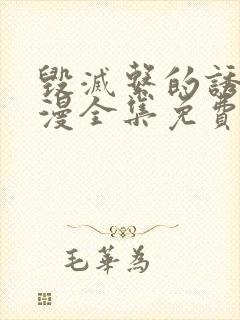 毀滅系的誘
漫全集免費
毛華為